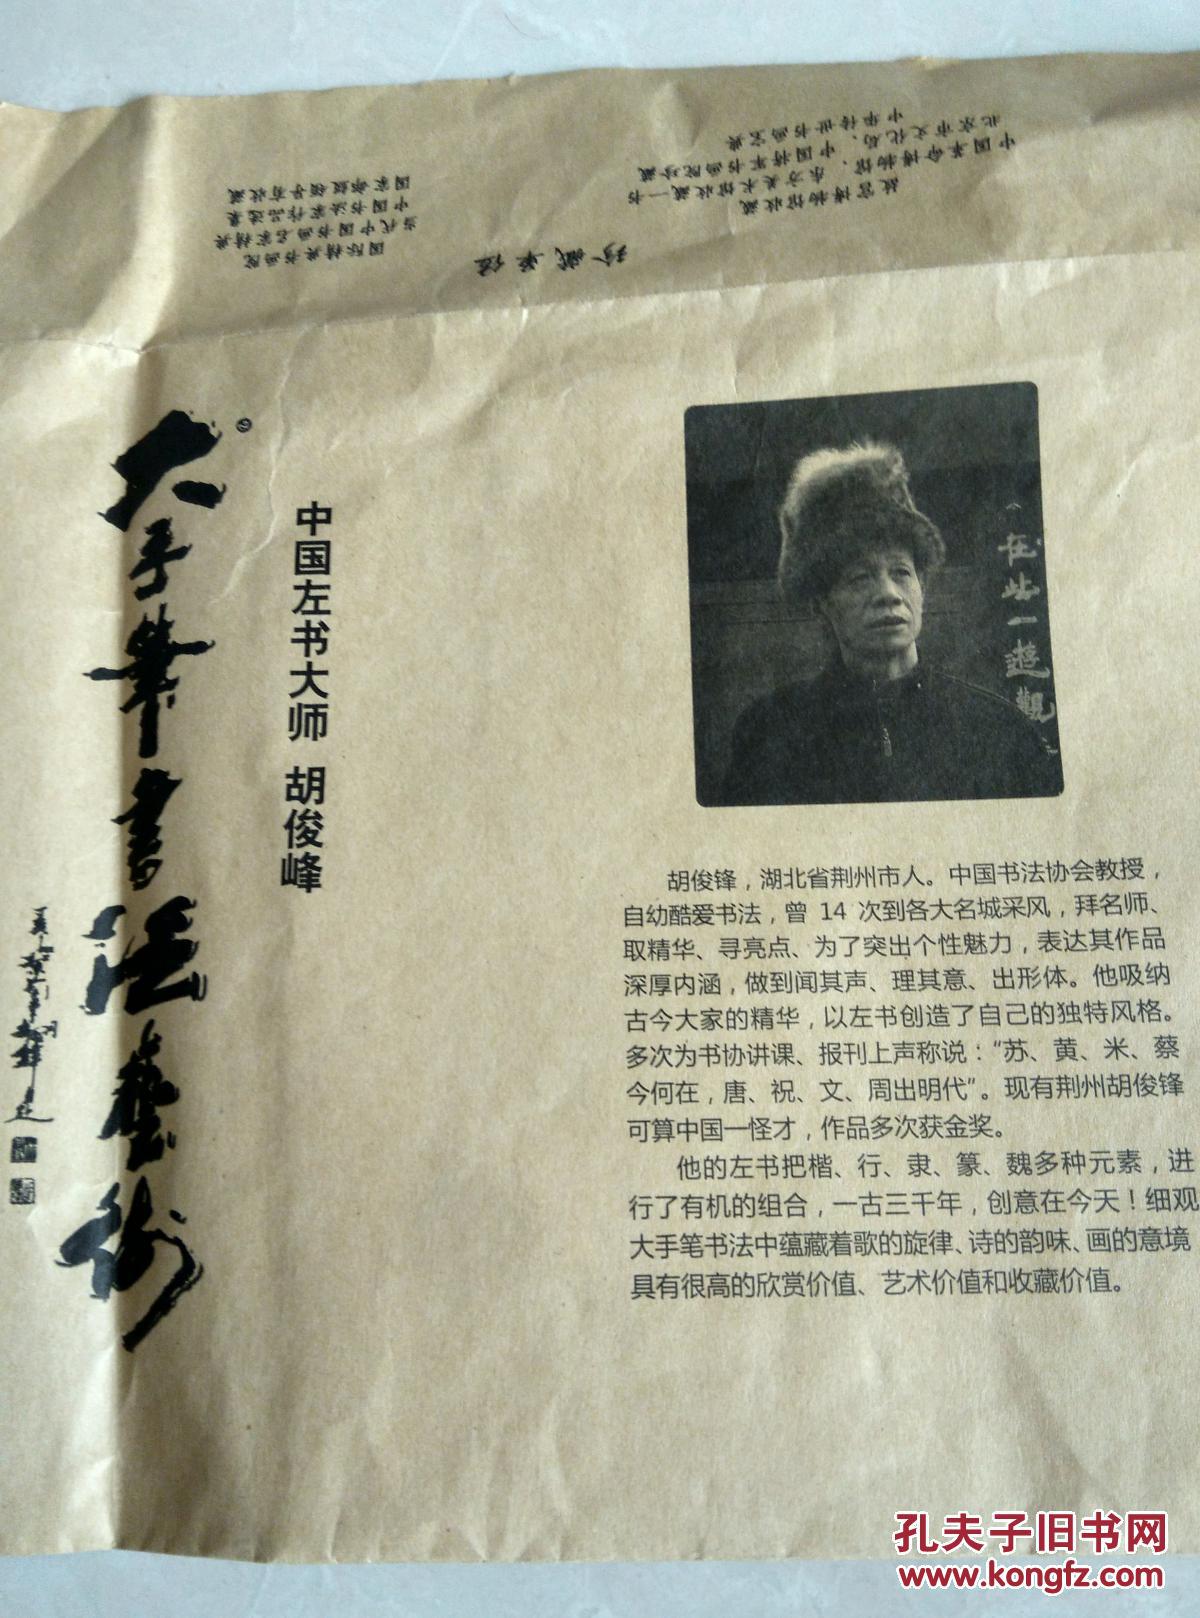 珍藏单位
故宫博物馆收藏
中国革命博物馆、东方美术馆收藏一书
北京市文化局、中国将军书画院珍藏
中华传世书画宝典
国际精典书画院
当代中国书画名家精典
中国书法家作品选集
国家部级领导有收藏
大手笔書法藝術
中国左书大师 胡俊峰
在此一遊觀
胡俊锋，湖北省荆州市人。中国书法协会教授，
自幼酷爱书法，曾 14 次到各大名城采风，拜名师、
取精华、寻亮点、为了突出个性魅力，表达其作品
深厚内涵，做到闻其声、理其意、出形体。他吸纳
古今大家的精华，以左书创造了自己的独特风格。
多次为书协讲课、报刊上声称说：“苏、黄、米、蔡
今何在，唐、祝、文、周出明代”。现有荆州胡俊锋
可算中国一怪才，作品多次获金奖。
他的左书把楷、行、隶、篆、魏多种元素，进
行了有机的组合，一古三千年，创意在今天！细观
大手笔书法中蕴藏着歌的旋律、诗的韵味、画的意境
具有很高的欣赏价值、艺术价值和收藏价值。
孔夫子旧书网
www.kongfz.com